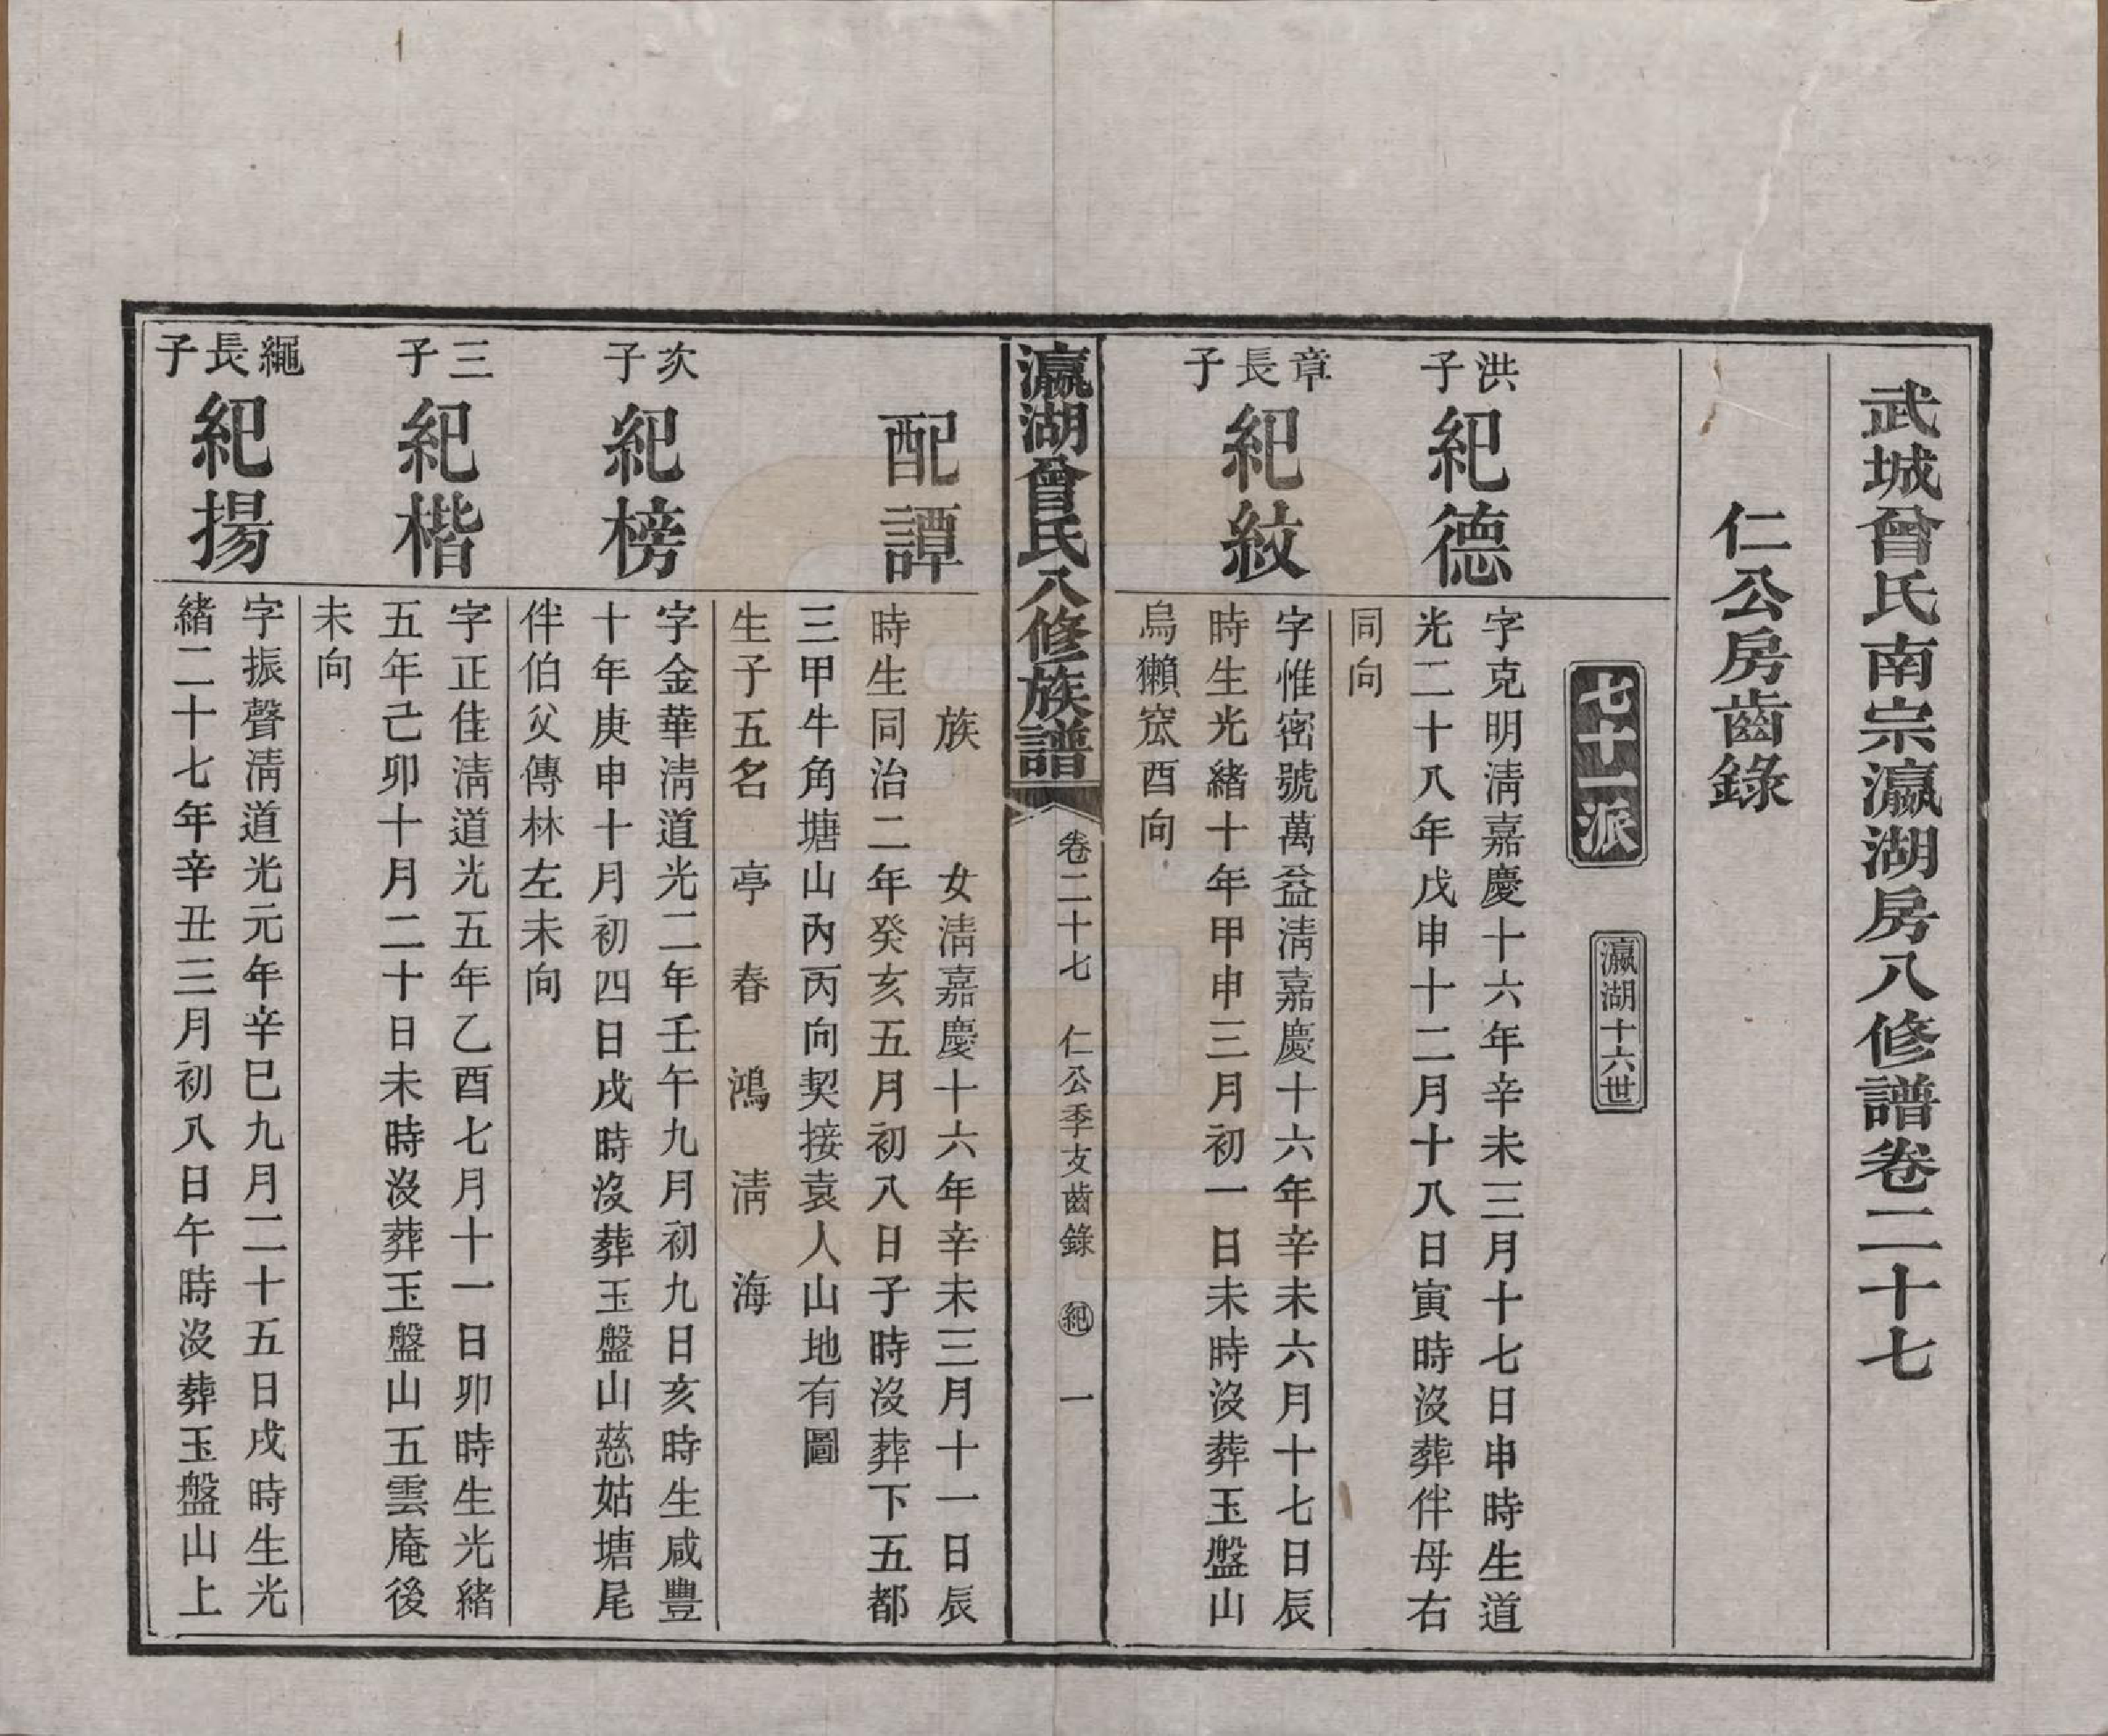 武城曾氏南宗瀛湖房八修譜卷二十七
仁公房齒錄
七十一派
瀛湖十六世
洪子
紀德
字克明淸嘉慶十六年辛未三月十七日申時生道
光二十八年戊申十二月十八日寅時沒葬伴母右
同向
章長子
紀紋
字惟密號萬益淸嘉慶十六年辛未六月十七日辰
時生光緒十年甲申三月初一日未時沒葬玉盤山
烏獺窊酉向
瀛湖曾氏八修族譜
卷二十七
仁公季支齒錄
紀
一
配譚
族女淸嘉慶十六年辛未三月十一日辰
時生同治二年癸亥五月初八日子時沒葬下五都
三甲牛角塘山內丙向契接袁人山地有圖
生子五名 亭 春 鴻 淸 海
次子
紀榜
字金華淸道光二年壬午九月初九日亥時生咸豐
十年庚申十月初四日戌時沒葬玉盤山慈姑塘尾
伴伯父傳林左未向
三子
紀楷
字正佳淸道光五年乙酉七月十一日卯時生光緒
五年己卯十月二十日未時沒葬玉盤山五雲庵後
未向
繩長子
紀揚
字振聲淸道光元年辛巳九月二十五日戌時生光
緒二十七年辛丑三月初八日午時沒葬玉盤山上